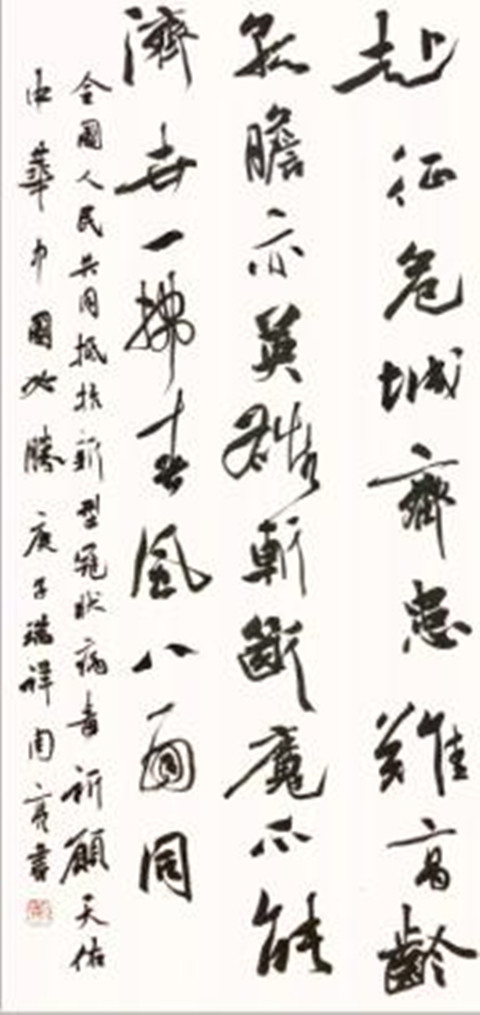 赴征危城齊患難高齡
孤膽亦英雄斬斷魔爪能
濟世一拂春風八面同
全國人民共同抵抗新型冠狀病毒祈願天佑
中華中國必勝庚子瑞祥周亮書